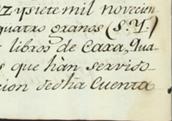 z y siete mil novecien
quatro granos (S.Y.)
libros de Caxa, Qua
s que han servido
cion de dha Cuenta